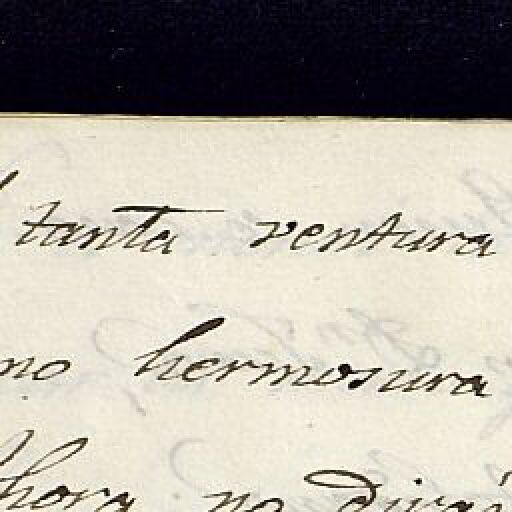 tanta ventura
no hermosura
hora no dirá